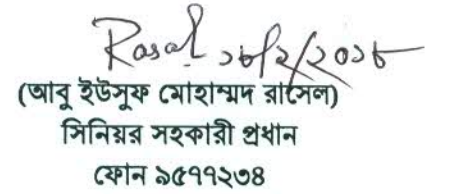 Rasel ১৮/২/২০১৮
(আবু ইউসুফ মোহাম্মদ রাসেল)
সিনিয়র সহকারী প্রধান
ফোন ৯৫৭৭২৩৪